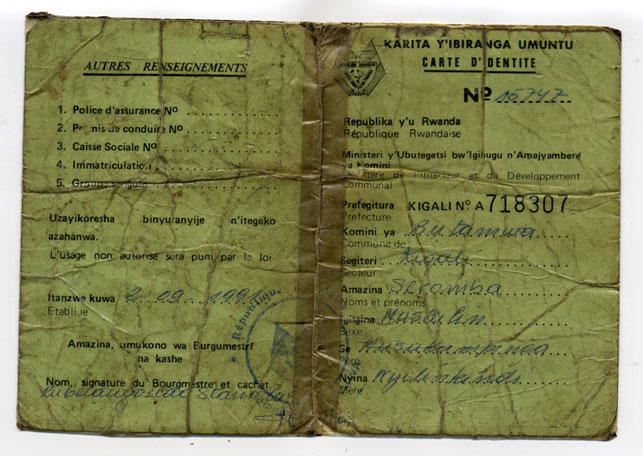 AUTRES RENSEIGNEMENTS
1. Police d'assurance No
2. Permis de conduire No
3. Caisse Sociale No
4. Immatriculation
5. Groupe
Uzayikoresha binyuranyije n'itegeko
azahanwa.
L'usage non autorisé sera puni par la loi
Itanzwe kuwa 2 09 1991
Etabli le
Amazina, umukono wa Burgumestri
na kashe
Nom, signature du Bourgmestre et cachet
République
KARITA Y'IBIRANGA UMUNTU
CARTE D'IDENTITE
No 15747
Republika y'u Rwanda
République Rwandaise
Ministeri y'Ubutegetsi bw'Igihugu n'Amajyambere
ya Komini
Ministère de l'Intérieur et du Développement
Communal
Prefegitura KIGALI No A 718307
Préfecture
Komini ya Butamwa
Commune de
Segiteri Kigali
Secteur
Amazina Seromba
Noms et prénoms
Igitsina Masculin
Sexe
Se
Père
Nyina
Mère